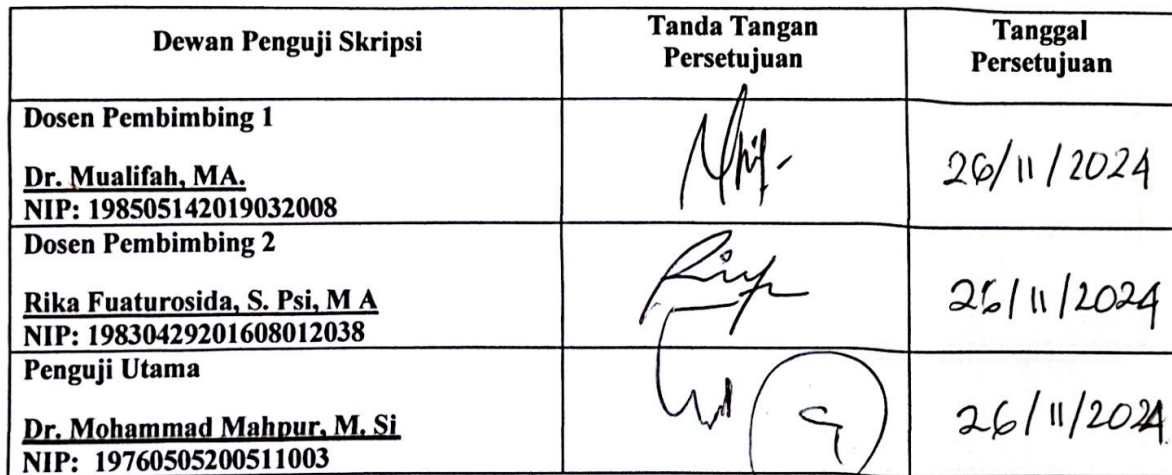 Dewan Penguji Skripsi
Tanda Tangan
Persetujuan
Tanggal
Persetujuan
Dosen Pembimbing 1
Dr. Mualifah, MA.
NIP: 198505142019032008
26/11/2024
Dosen Pembimbing 2
Rika Fuaturosida, S. Psi, M A
NIP: 19830429201608012038
/11/2024
Penguji Utama
Dr. Mohammad Mahpur, M. Si
NIP: 19760505200511003
26/11/2024